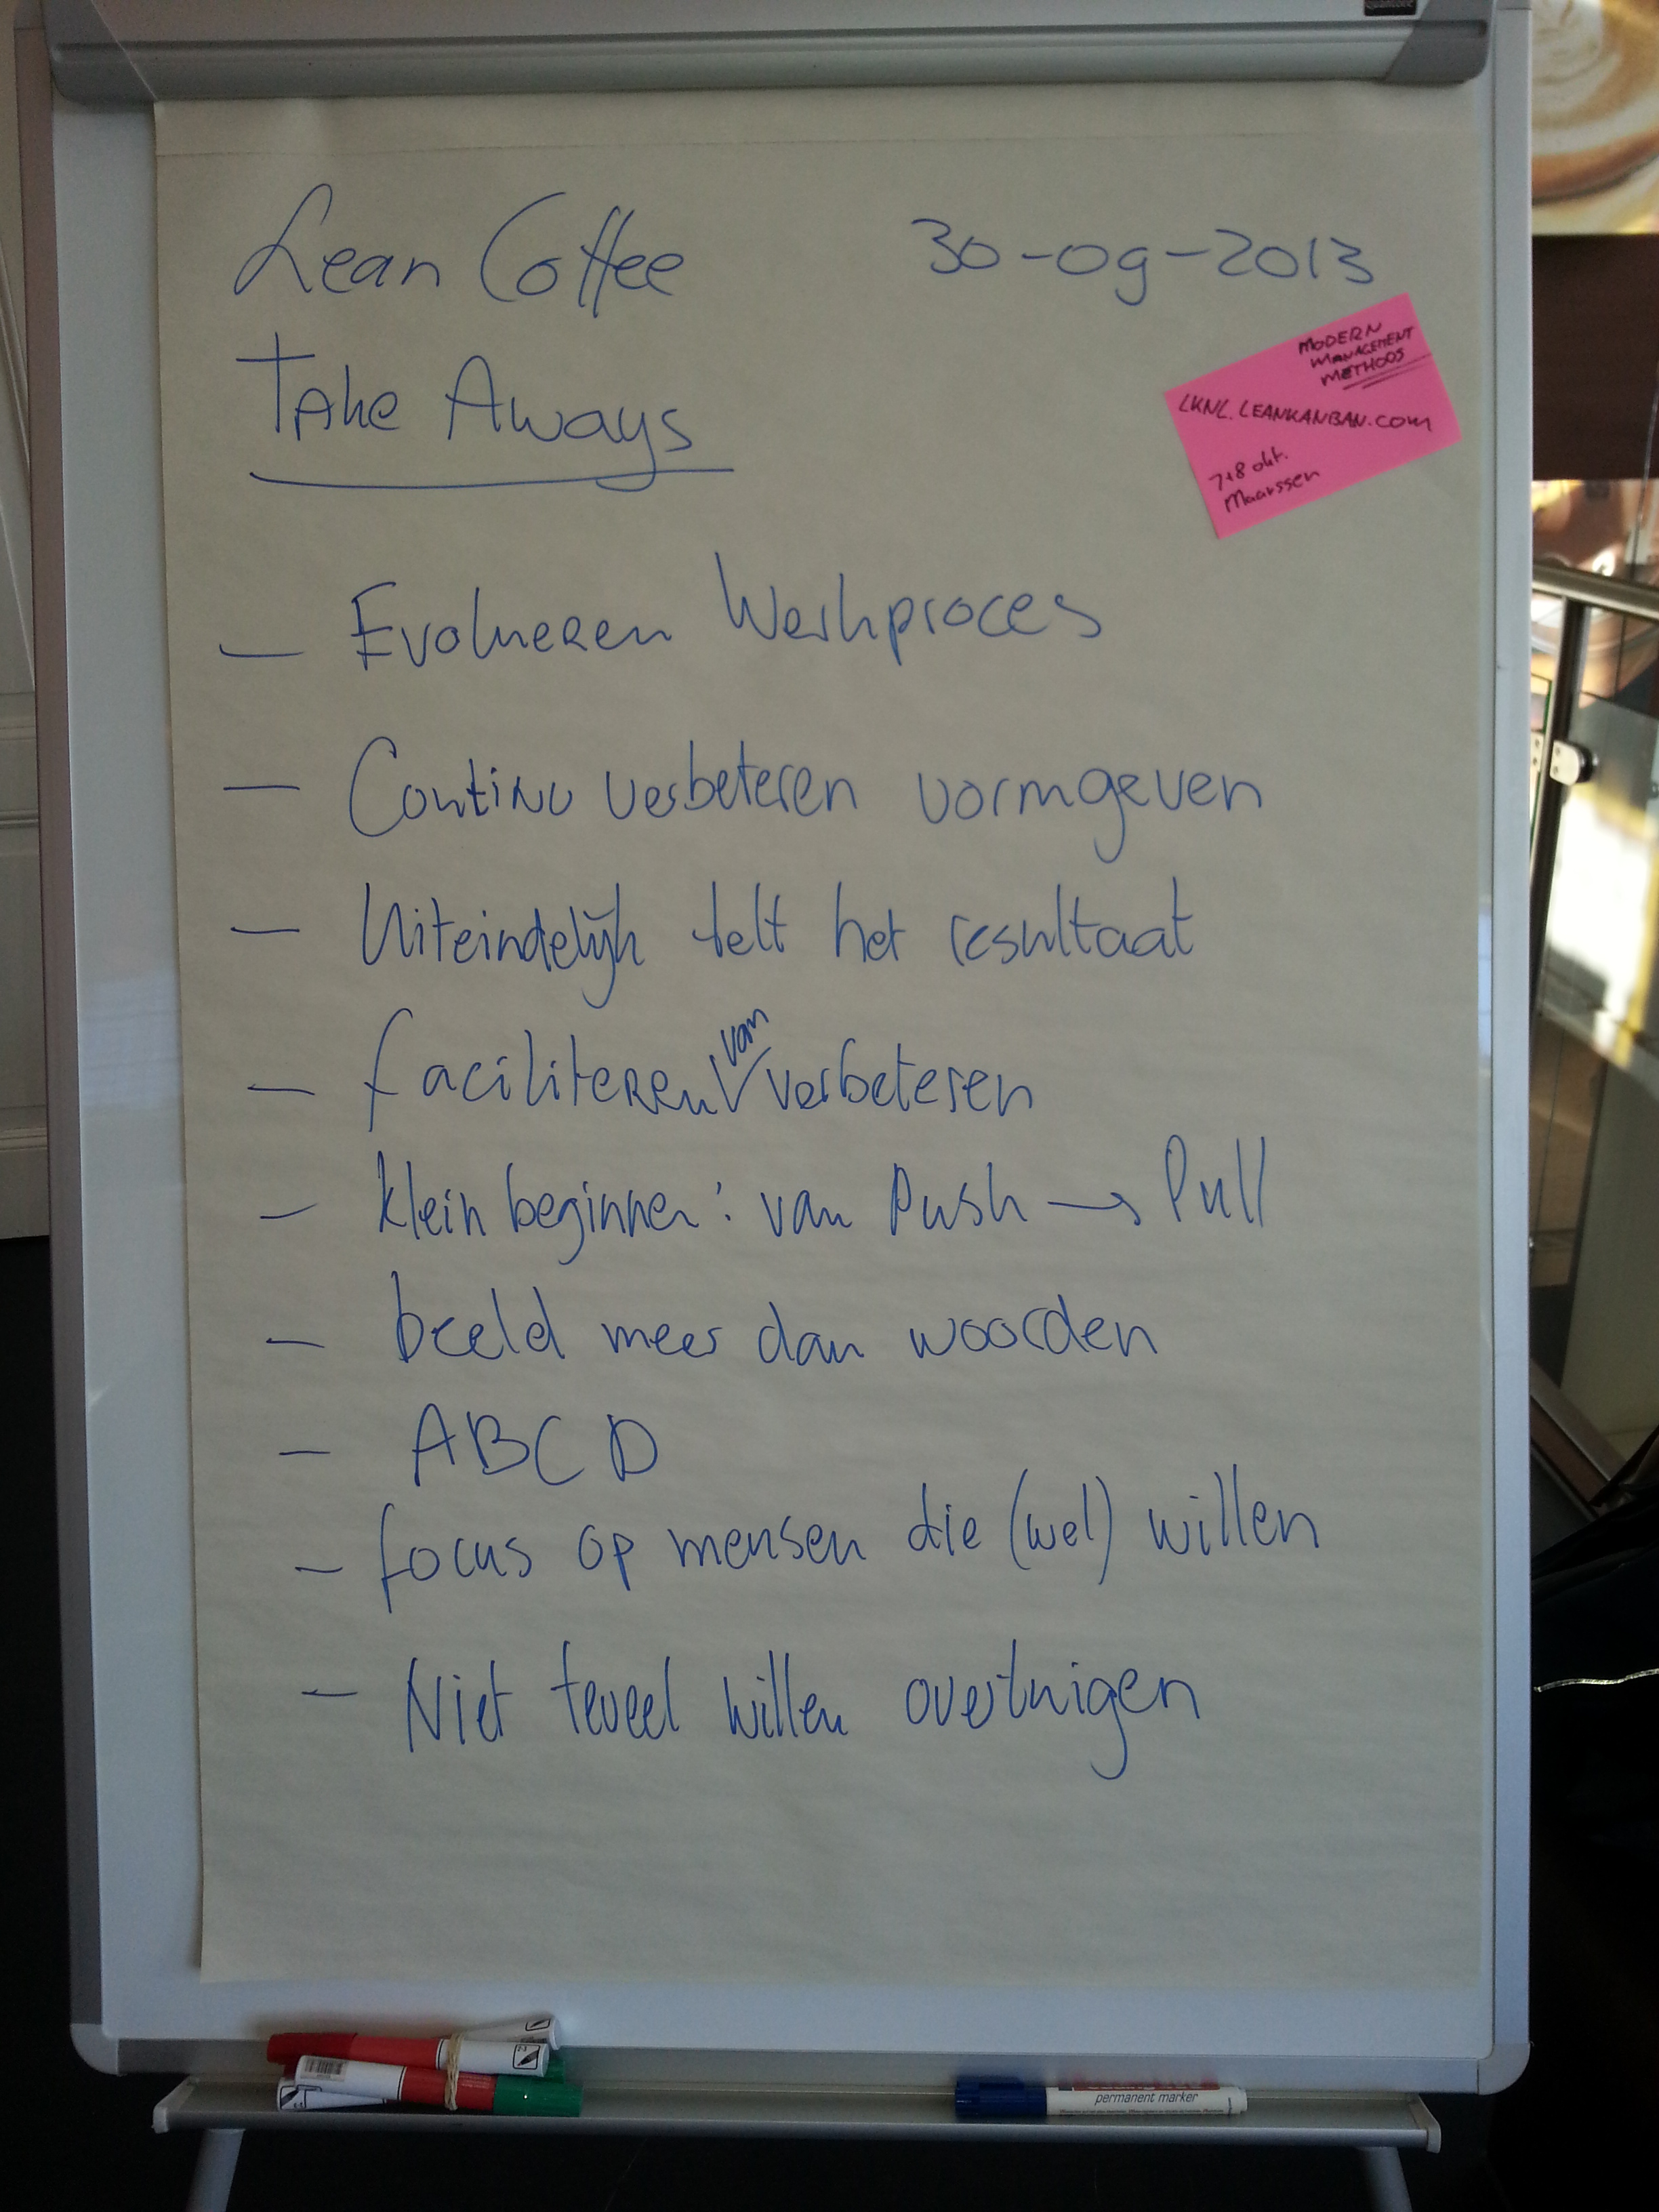 Lean Coffee 30-09-2013
Take Aways
MODERN
MANAGEMENT
METHODS
LKNL.LEANKANBAN.com
7+8 okt.
Maarssen
- Evolueren Werkproces
- Continu verbeteren vormgeven
- Uiteindelijk telt het resultaat
- faciliteren van verbeteren
- klein beginnen: van Push → Pull
- beeld meer dan woorden
- ABCD
- focus op mensen die (wel) willen
- Niet teveel willen overtuigen
permanent marker